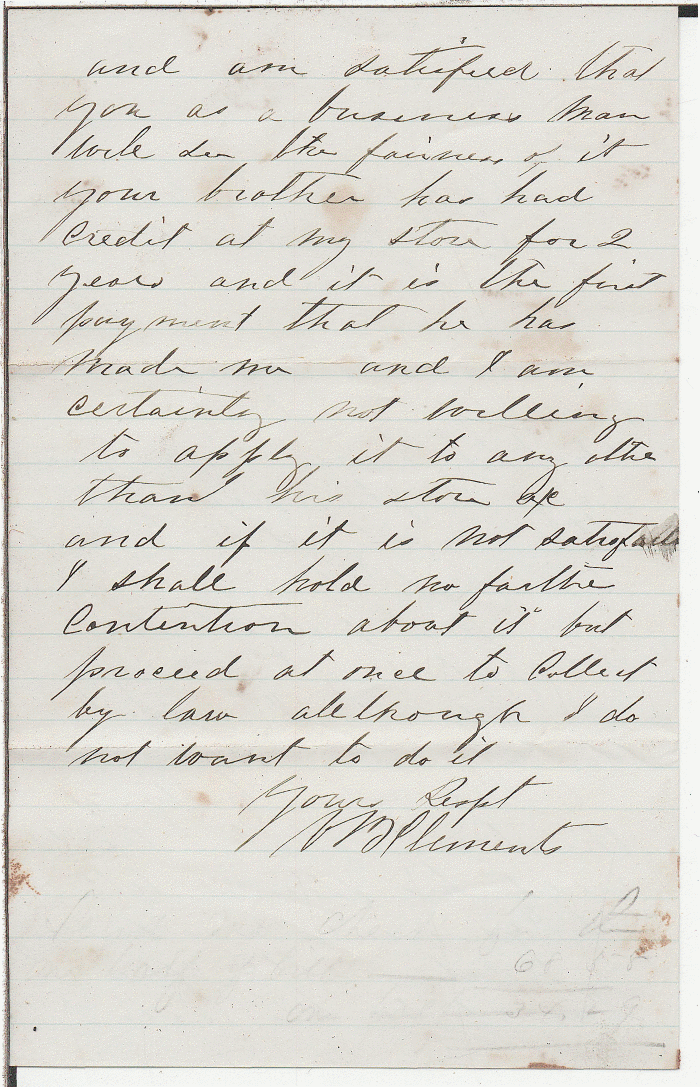 and am satisfied that
you as a business man
will see the fairness of it
your brother has had
credit at my store for 2
years and it is the first
payment that he has
made me and I am
certainly not willing
to apply it to any other
than his store ac
and if it is not satisfact
I shall hold no farther
Contention about it but
proceed at once to Collect
by law allthough I do
not want to do it
Yours Respt
Clements
68